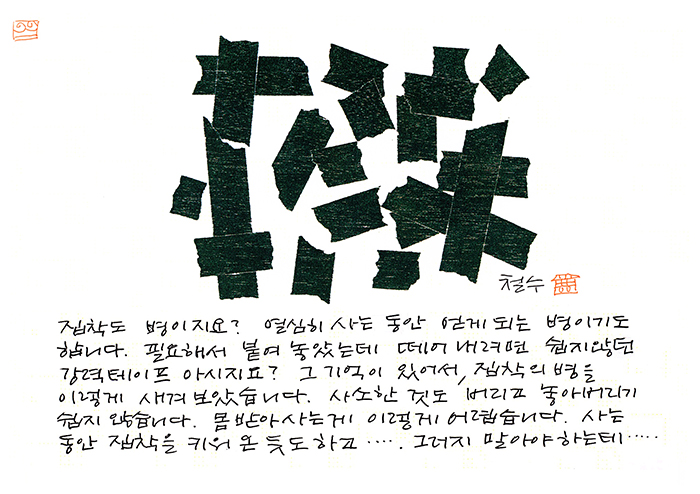 철수
집착도 병이지요? 열심히 사는 동안 얻게 되는 병이기도
합니다. 필요해서 붙여 놓았는데 떼어 내려면 쉽지않던
강력테이프 아시지요? 그 기억이 있어서, 집착의 병을
이렇게 새겨 보았습니다. 사소한 것도 버리고 놓아버리기
쉽지 않습니다. 몸 받아 사는게 이렇게 어렵습니다. 사는
동안 집착을 키워 온 듯도 하고 ····. 그러지 말아야 하는데·····